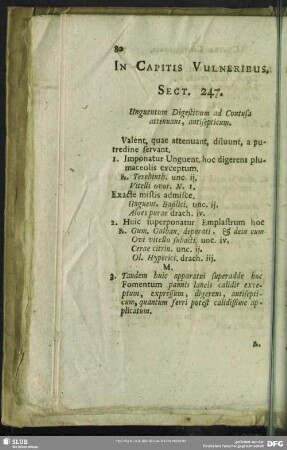 80
IN CAPITIS VULNERIBUS.
SECT. 247.
Unguentum Digestivum ad Contusa
attenuans, antisepticum.
Valent, quae attenuant, diluunt, a pu-
tredine servant.
1. Imponatur Unguent. hoc digerens plu-
maceolis exceptum.
℞. Terebinth. unc. ij.
Vitelli ovor. N. 1.
Exacte mistis admisce.
Unguent. Basilici. unc. ij.
Aloes purae drach. iv.
2. Huic superponatur Emplastrum hoc
℞. Gum. Galban. depurati, & dein cum
Ovi vitello subacti, unc. iv.
Cerae citrin. unc. ij.
Ol. Hyperici. drach. iij.
M.
3. Tandem huic apparatui superadde hoc
Fomentum pannis laneis calidis exce-
ptum, expressum, digerens, antisepti-
cum, quantum ferri potest calidissime ap-
plicatum.
℞.
SLUB
DFG